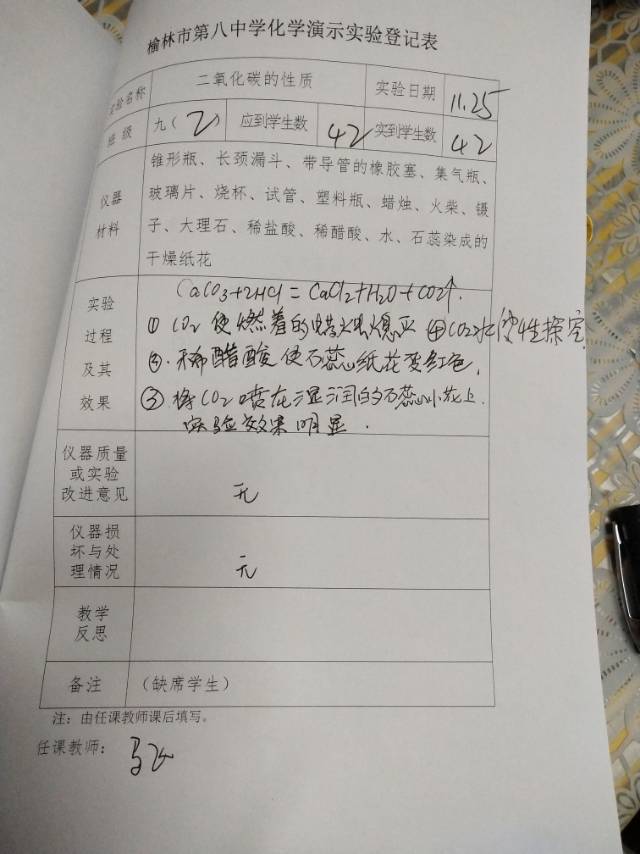 榆林市第八中学化学演示实验登记表
实验名称 二氧化碳的性质 实验日期 11.25
班级 九(2) 应到学生数 42 实到学生数 42
仪器材料
锥形瓶、长颈漏斗、带导管的橡胶塞、集气瓶、
玻璃片、烧杯、试管、塑料瓶、蜡烛、火柴、镊
子、大理石、稀盐酸、稀醋酸、水、石蕊染成的
干燥纸花
实验
过程
及其
效果
CaCO3+2HCl=CaCl2+H2O+CO2↑.
① CO2使燃着的蜡火熄灭 ④CO2水溶性探究
②.稀醋酸使石蕊纸花变红色.
③.将CO2喷在湿润的石蕊小花上.
实验效果明显.
仪器质量
或实验
改进意见
无
仪器损
坏与处
理情况
无
教学
反思
备注 (缺席学生)
注:由任课教师课后填写。
任课教师: